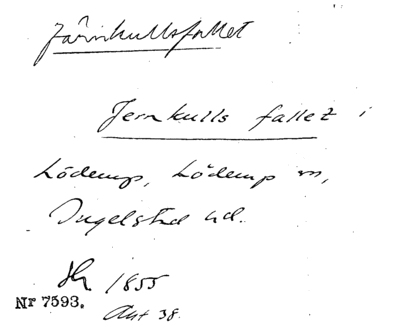 Järnkullsfallet
Jernkulls fallet i
Löderup, Löderup sn,
Ingelstad hd.
Sk 1855
Nr 7593.
Akt 38.